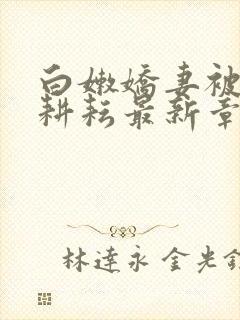 白嫩嬌妻被
耕耘最新章
林達永 金光鎬